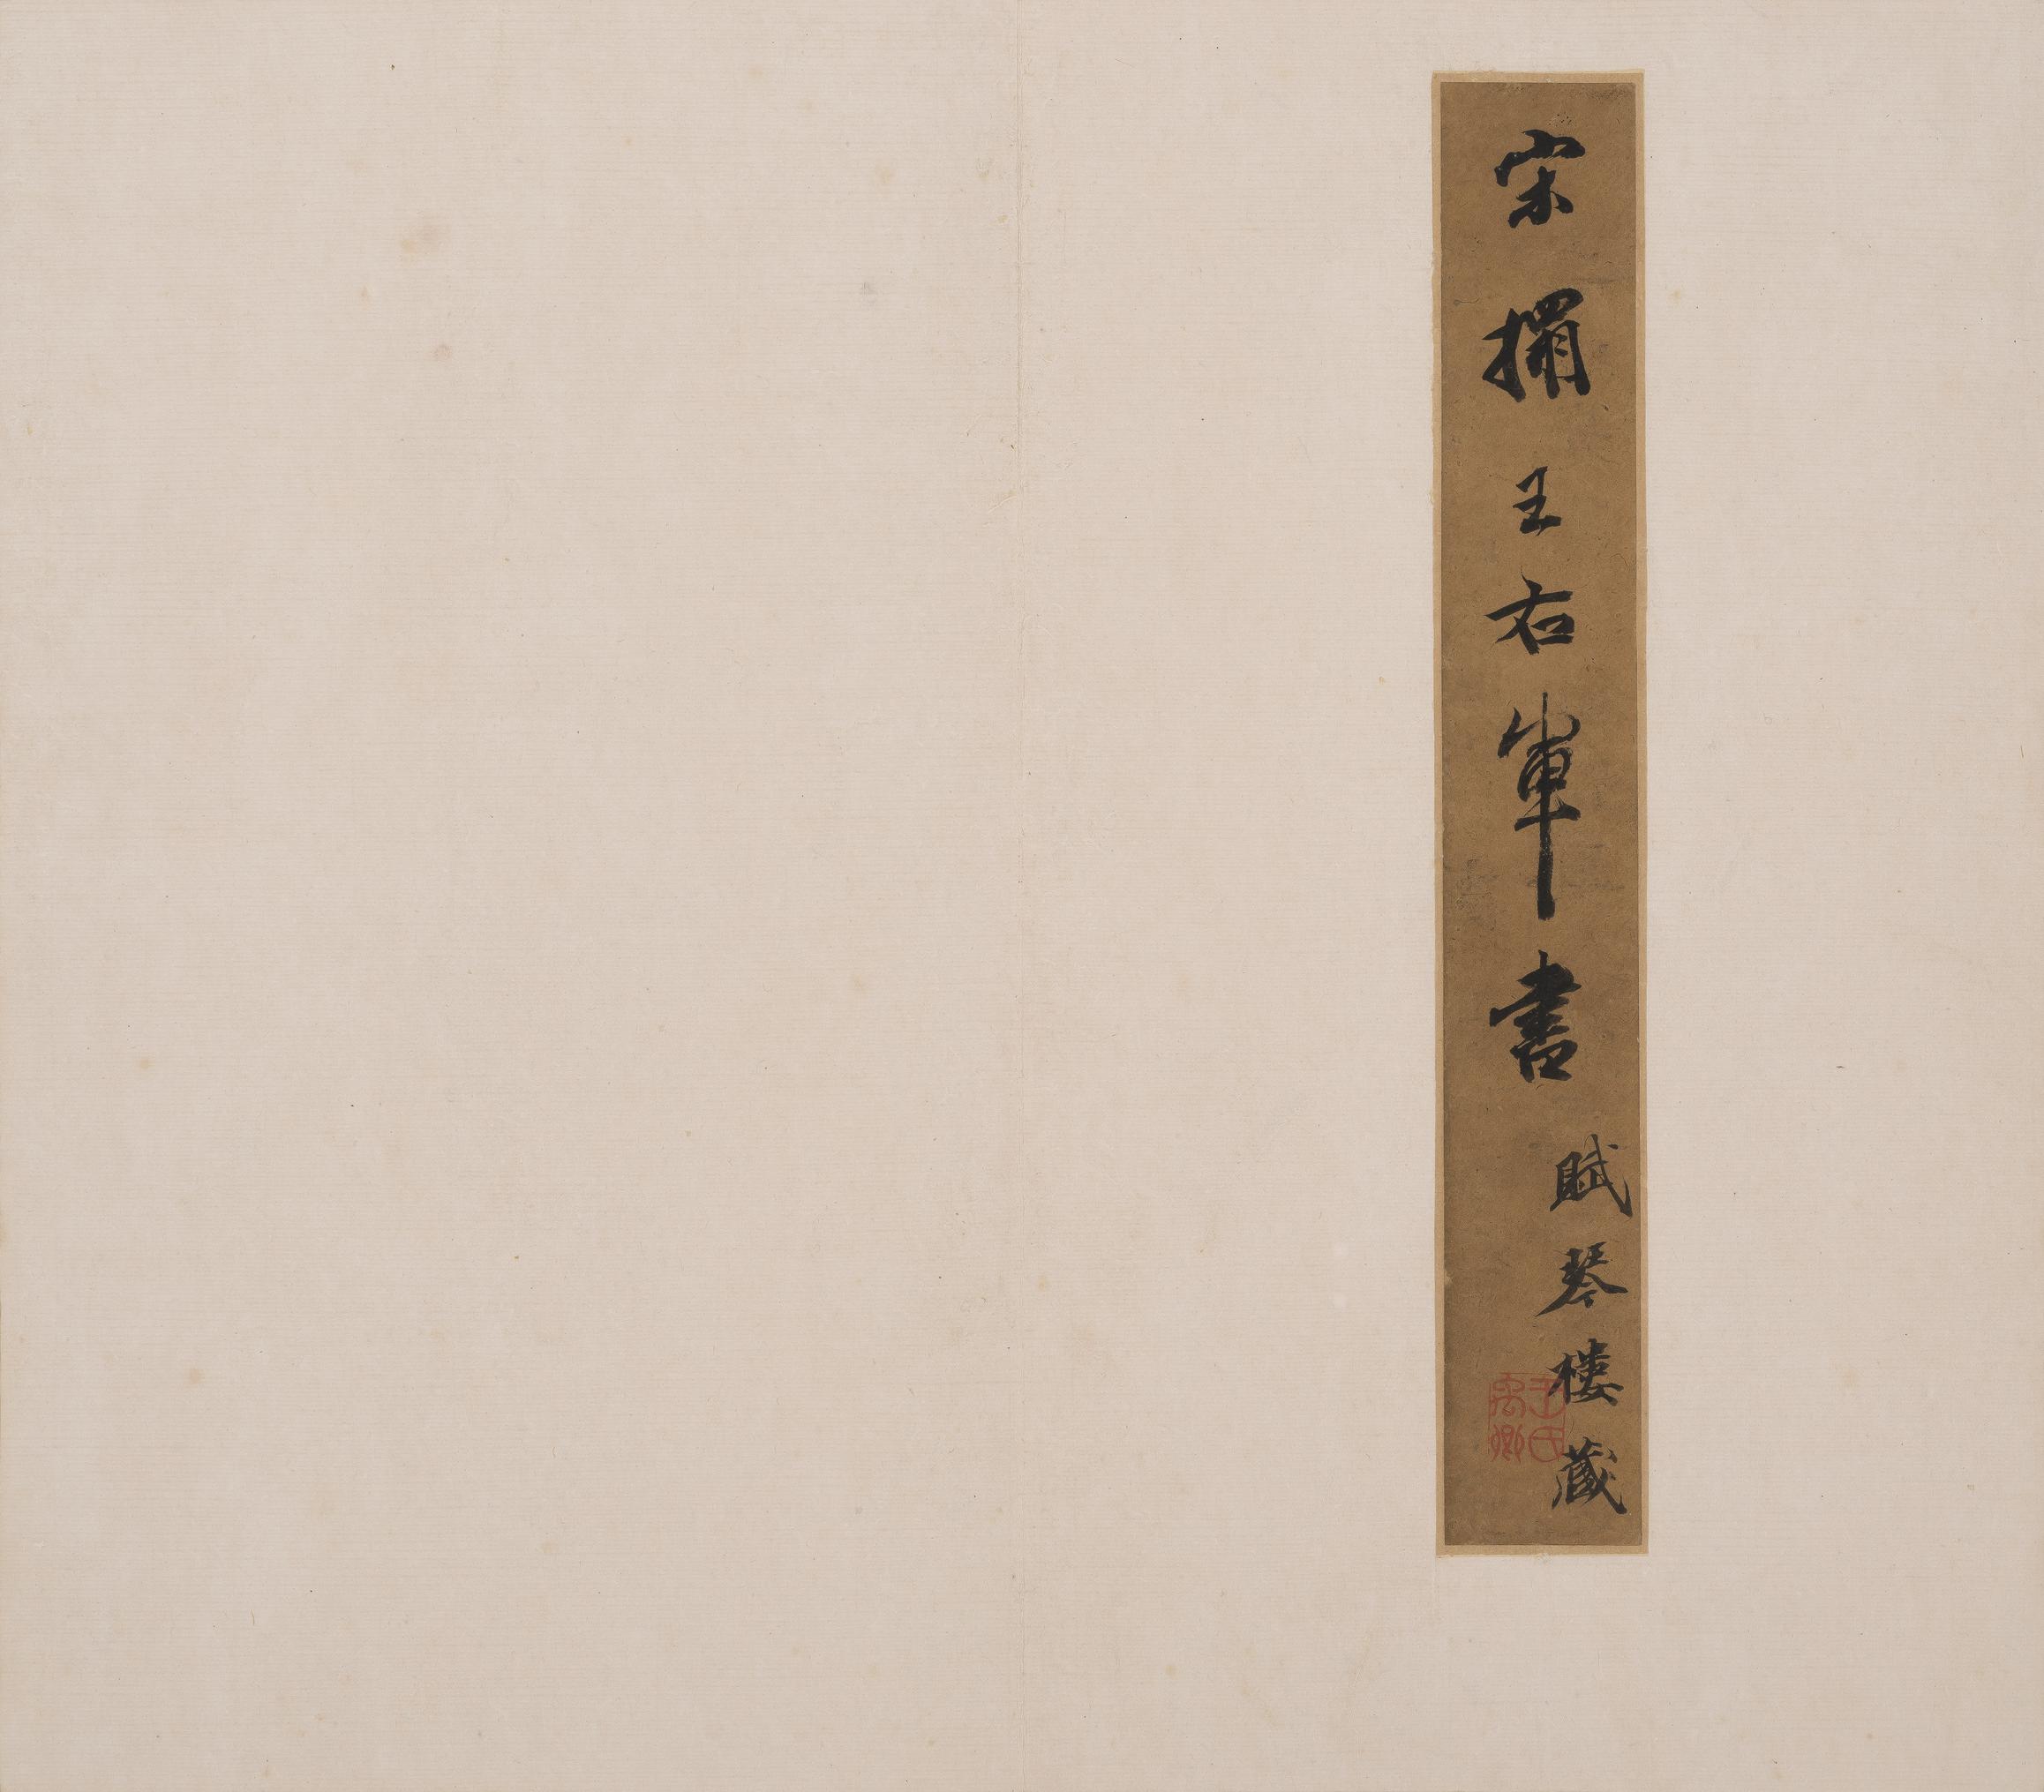 宋搨王右軍書
賦琴樓藏
王氏禹卿